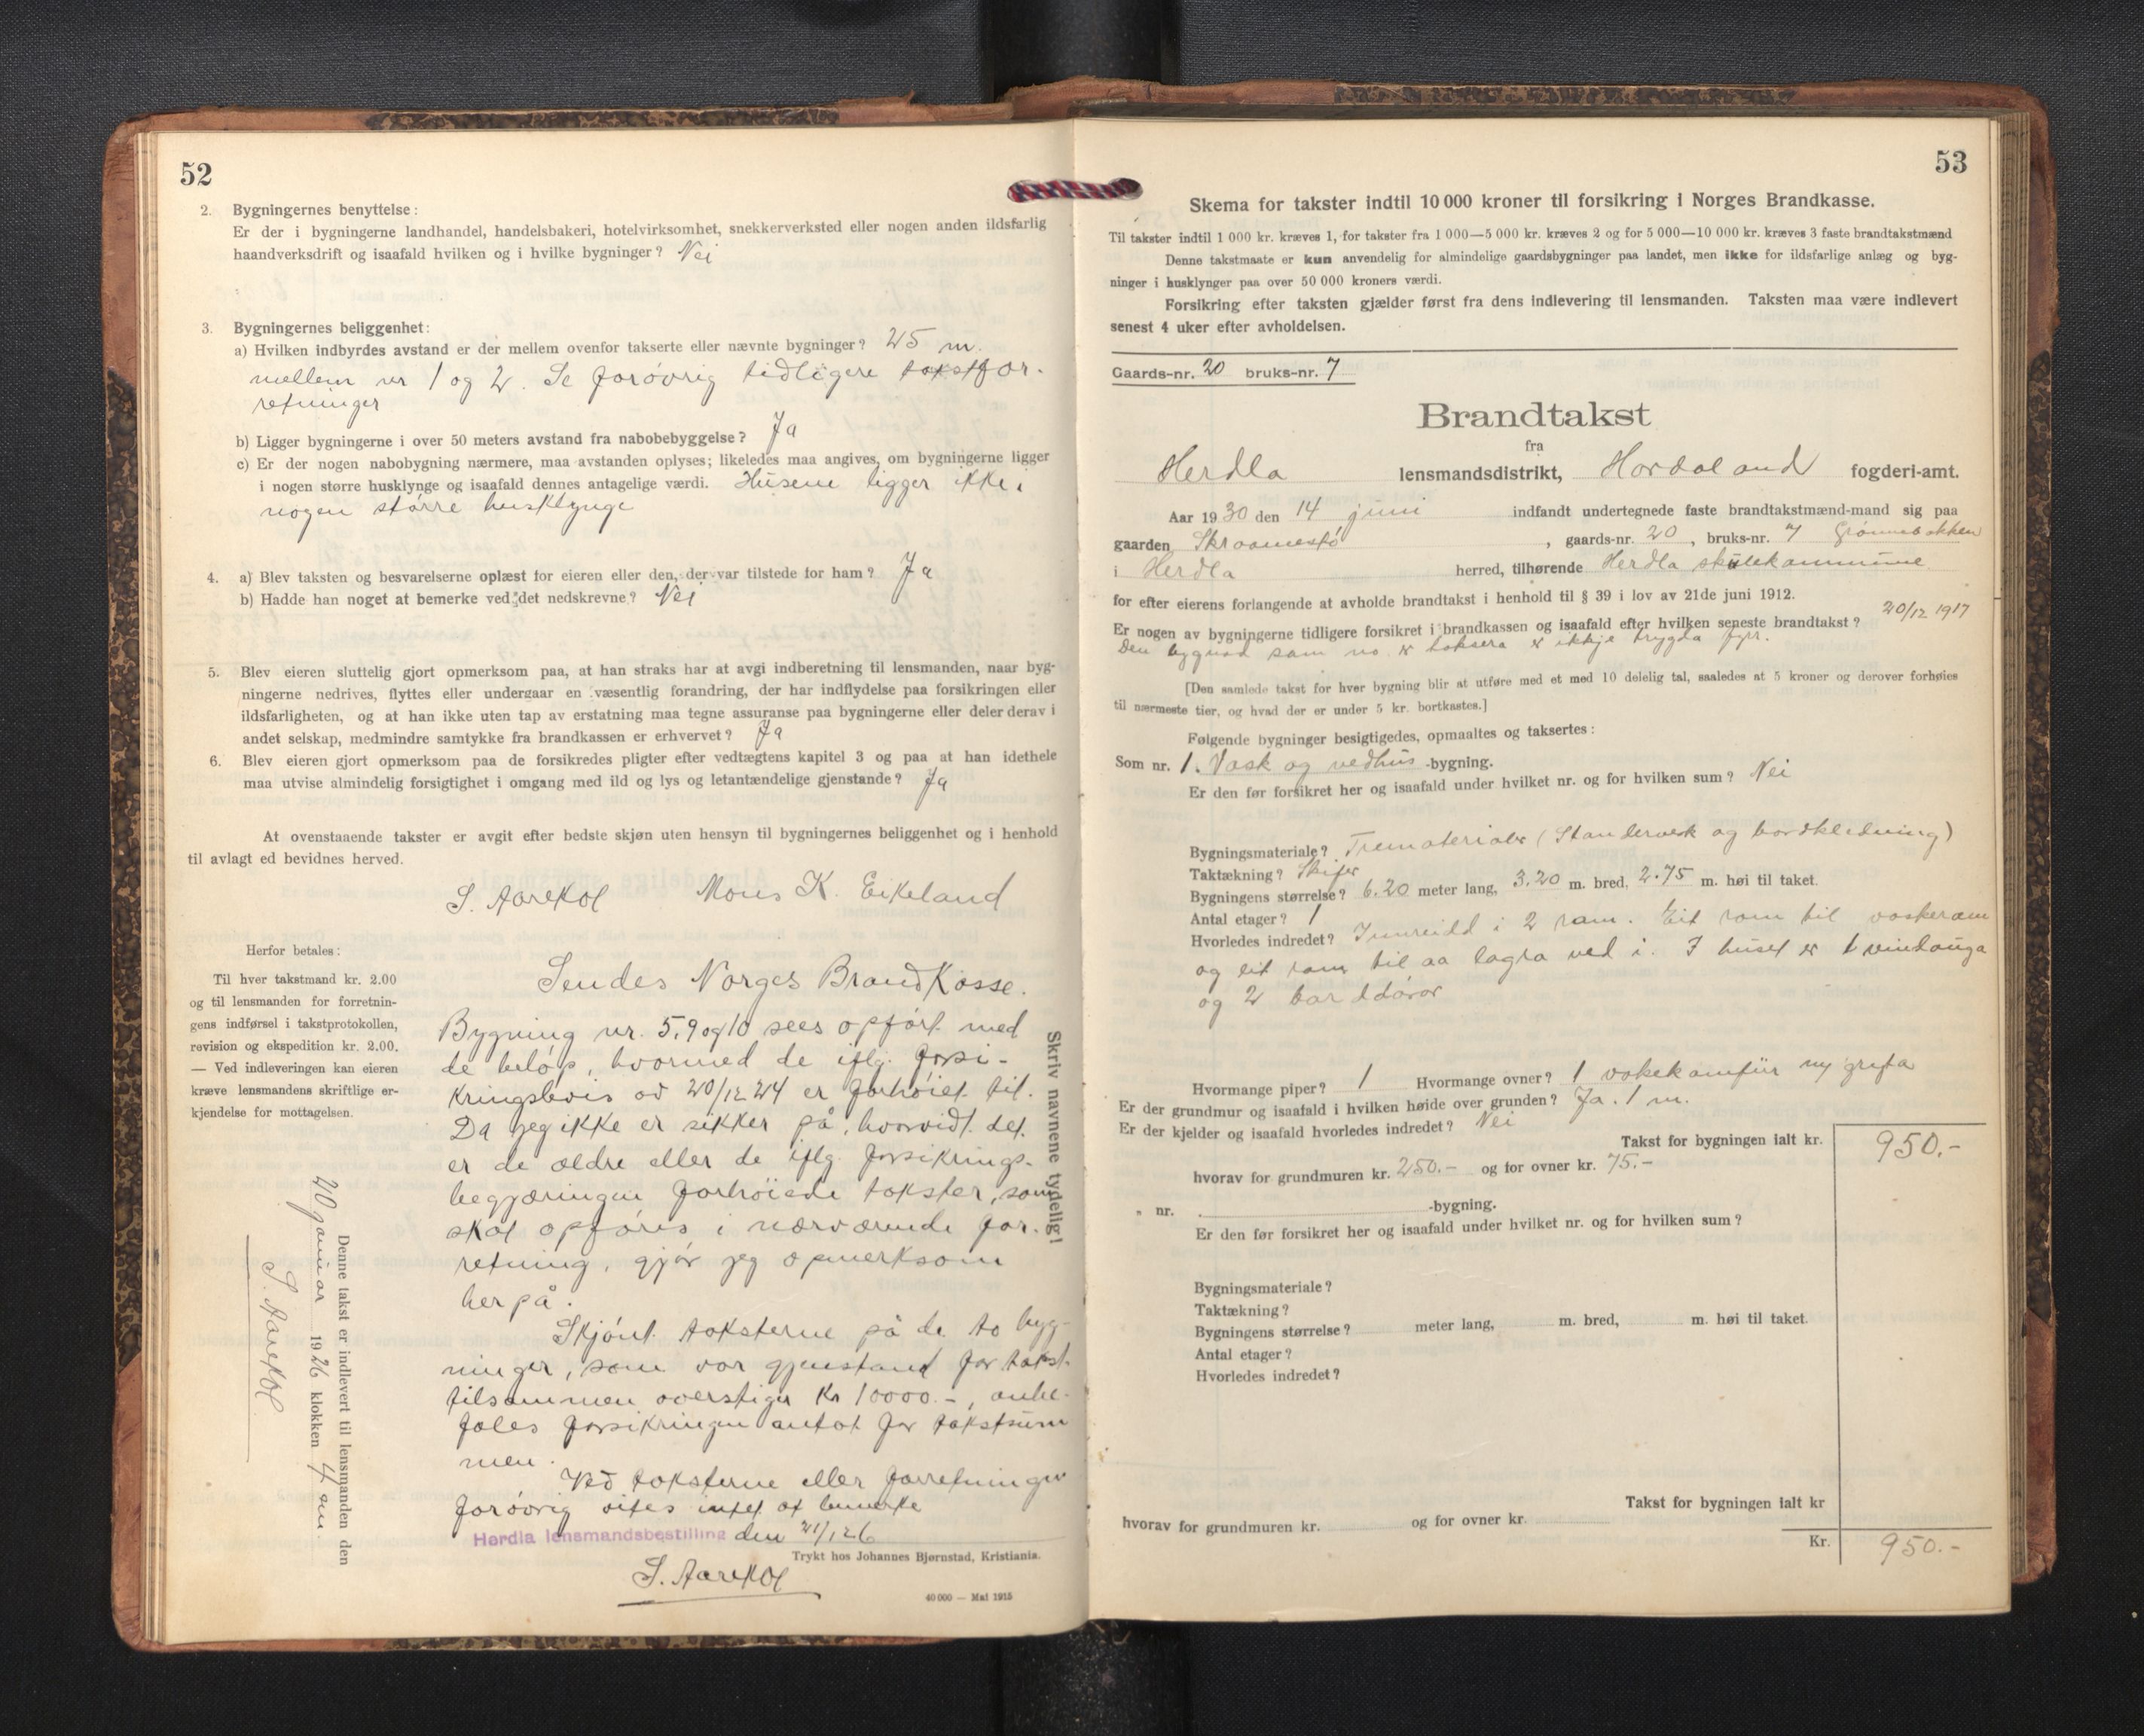 52
2. Bygningernes benyttelse:
Er der i bygningerne landhandel, handelsbakeri, hotelvirksomhet, snekkerverksted eller nogen anden ildsfarlig
haandverksdrift og isaafald hvilken og i hvilke bygninger? Nei
3. Bygningernes beliggenhet:
a) Hvilken indbyrdes avstand er der mellem ovenfor takserte eller nævnte bygninger? 25 m.
mellem nr 1 og 2. Se forøvrig tidligere takstfor-
retninger
b) Ligger bygningerne i over 50 meters avstand fra nabobebyggelse? Ja
c) Er der nogen nabobygning nærmere, maa avstanden oplyses; likeledes maa angives, om bygningerne ligger
i nogen større husklynge og isaafald dennes antagelige værdi. Husene ligger ikke i
nogen større husklynge
4. a) Blev taksten og besvarelserne oplæst for eieren eller den, der var tilstede for ham? Ja
b) Hadde han noget at bemerke ved det nedskrevne? Nei
5. Blev eieren sluttelig gjort opmerksom paa, at han straks har at avgi indberetning til lensmanden, naar byg-
ningerne nedrives, flyttes eller undergaar en væsentlig forandring, der har indflydelse paa forsikringen eller
ildsfarligheten, og at han ikke uten tap av erstatning maa tegne assuranse paa bygningerne eller deler derav i
andet selskap, medmindre samtykke fra brandkassen er erhvervet? Ja
6. Blev eieren gjort opmerksom paa de forsikredes pligter efter vedtægtens kapitel 3 og paa at han idethele
maa utvise almindelig forsigtighet i omgang med ild og lys og letantændelige gjenstande? Ja
At ovenstaaende takster er avgit efter bedste skjøn uten hensyn til bygningernes beliggenhet og i henhold
til avlagt ed bevidnes herved.
S. Aarekol Mons K. Eikeland
Herfor betales:
Til hver takstmand kr. 2.00
og til lensmanden for forretnin-
gens indførsel i takstprotokollen,
revision og ekspedition kr. 2.00.
— Ved indleveringen kan eieren
kræve lensmandens skriftlige er-
kjendelse for mottagelsen.
Sendes Norges Brandkasse.
Bygning nr. 5, 9 og 10 sees opført med
de beløp, hvormed de iflg. forsi-
kringsbevis av 20/12 24 er forhøiet til.
Da jeg ikke er sikker på, hvorvidt det
er de ældre eller de iflg. forsikrings-
begjæringen forhøiede takster, som
skal opføres i nærværende for-
retning, gjør jeg opmerksom
herpå.
Skjønt taksterne på de to byg-
ninger, som var gjenstand for takst
tilsammen overstiger kr 10000.-, anbe-
fales forsikringen antat for takstsum
men.
Ved taksterne eller forretningen
forøvrig vites intet at bemerke
Herdla lensmandsbestilling den 21/1 26
S. Aarekol
Skriv navnene tydelig!
Denne takst er indlevert til lensmanden den
20 januar 1926 klokken 4 em.
S. Aarekol
Trykt hos Johannes Bjørnstad, Kristiania.
40 000 — Mai 1915
53
Skema for takster indtil 10 000 kroner til forsikring i Norges Brandkasse.
Til takster indtil 1 000 kr. kræves 1, for takster fra 1 000—5 000 kr. kræves 2 og for 5 000—10 000 kr. kræves 3 faste brandtakstmænd
Denne takstmaate er kun anvendelig for almindelige gaardsbygninger paa landet, men ikke for ildsfarlige anlæg og byg-
ninger i husklynger paa over 50 000 kroners værdi.
Forsikring efter taksten gjælder først fra dens indlevering til lensmanden. Taksten maa være indlevert
senest 4 uker efter avholdelsen.
Gaards-nr. 20 bruks-nr. 7
Brandtakst
fra
Herdla lensmandsdistrikt, Hordaland fogderi-amt.
Aar 1930 den 14 juni indfandt undertegnede faste brandtakstmænd-mand sig paa
gaarden Skraamestø, gaards-nr. 20, bruks-nr. 7 Grønnebakken
i Herdla herred, tilhørende Herdla skulekommune
for efter eierens forlangende at avholde brandtakst i henhold til § 39 i lov av 21de juni 1912.
Er nogen av bygningerne tidligere forsikret i brandkassen og isaafald efter hvilken seneste brandtakst? 20/12 1917
Den bygnad som no er taksera er ikkje trygda fyrr.
[Den samlede takst for hver bygning blir at utføre med et med 10 delelig tal, saaledes at 5 kroner og derover forhøies
til nærmeste tier, og hvad der er under 5 kr. bortkastes.]
Følgende bygninger besigtigedes, opmaaltes og taksertes:
Som nr. 1. Vask og vedhus -bygning.
Er den før forsikret her og isaafald under hvilket nr. og for hvilken sum? Nei
Bygningsmateriale? Trematerialer (Standerverk og bordkledning)
Taktækning? Skifer
Bygningens størrelse? 6.20 meter lang, 3.20 m. bred, 2.75 m. høi til taket.
Antal etager? 1
Hvorledes indredet? Innreidd i 2 rom. Eit rom til vaskerom
og eit rom til aa lagra ved i. I huset er 1 vindauga
og 2 borddører
Hvormange piper? 1 Hvormange ovner? 1 ny gryta
Er der grundmur og isaafald i hvilken høide over grunden? Ja. 1 m.
Er der kjelder og isaafald hvorledes indredet? Nei
Takst for bygningen ialt kr. 950.-
hvorav for grundmuren kr. 250.- og for ovner kr. 75.-
„ nr. -bygning.
Er den før forsikret her og isaafald under hvilket nr. og for hvilken sum?
Bygningsmateriale?
Taktækning?
Bygningens størrelse? meter lang, m. bred, m. høi til taket.
Antal etager?
Hvorledes indredet?
Takst for bygningen ialt kr
hvorav for grundmuren kr. og for ovner kr.
Kr. 950.-